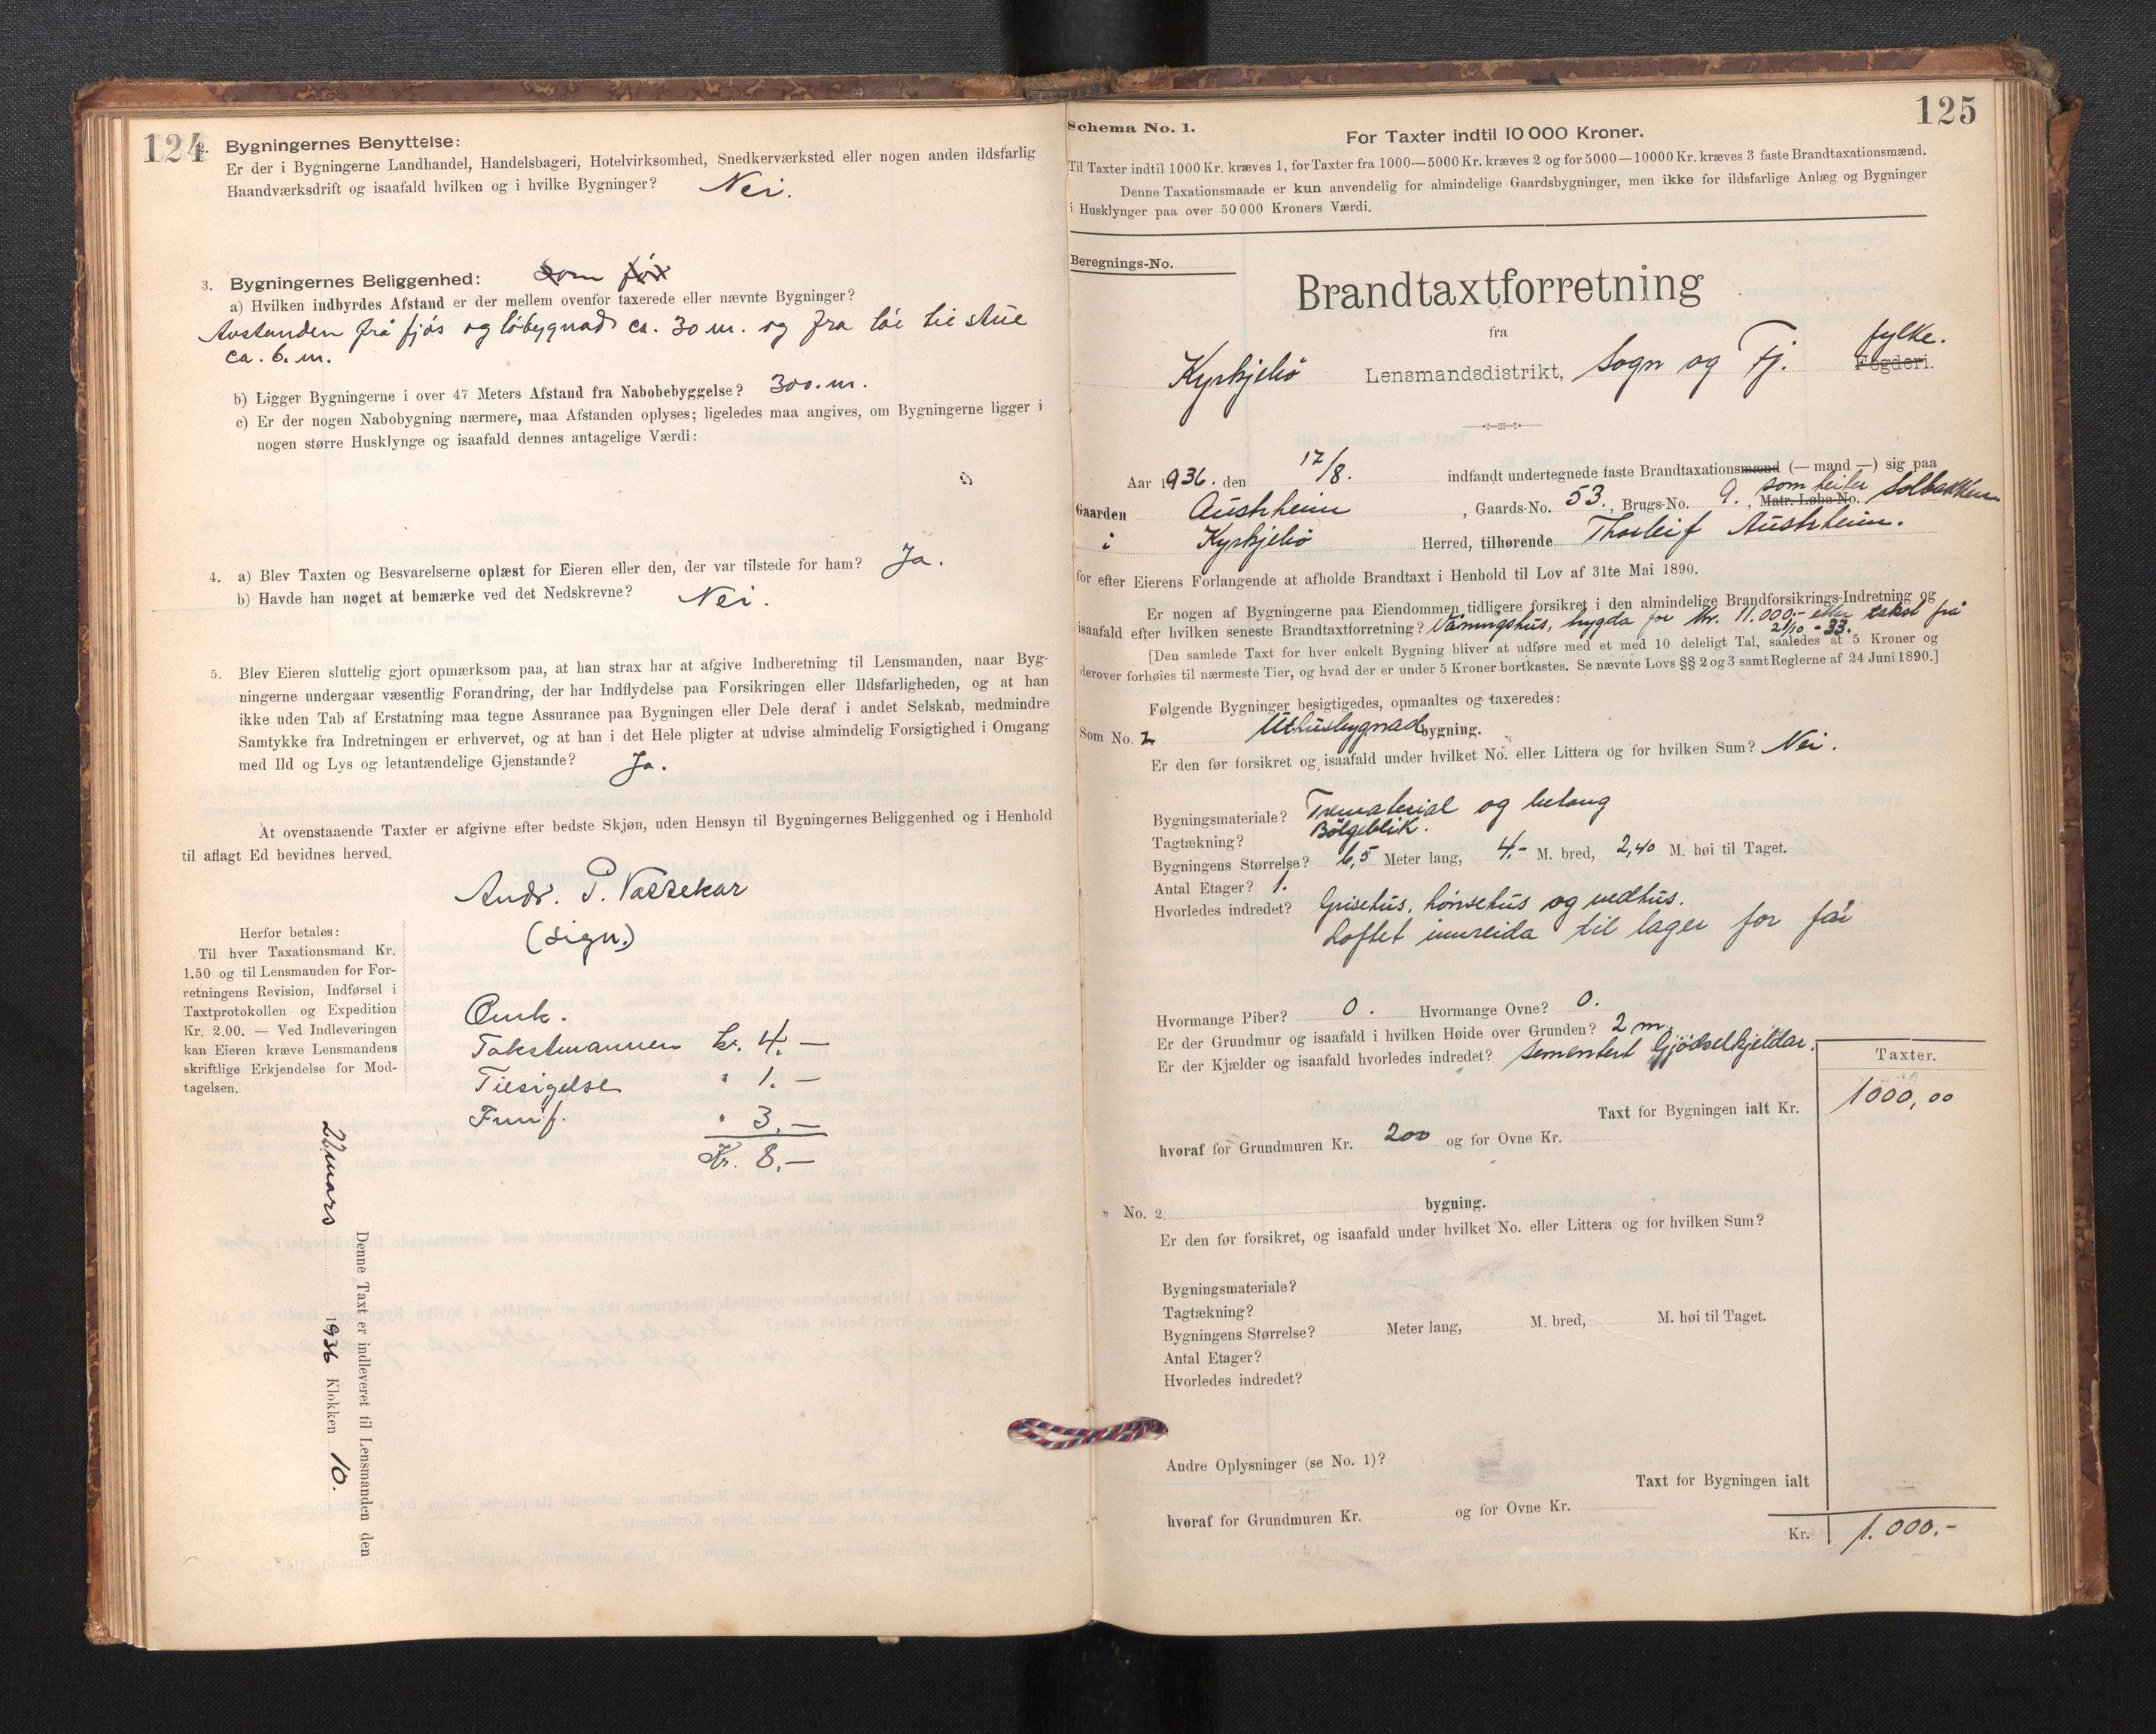 124
2. Bygningernes Benyttelse:
Er der i Bygningerne Landhandel, Handelsbageri, Hotelvirksomhed, Snedkerværksted eller nogen anden ildsfarlig
Haandværksdrift og isaafald hvilken og i hvilke Bygninger? Nei.
3. Bygningernes Beliggenhed: som før
a) Hvilken indbyrdes Afstand er der mellem ovenfor taxerede eller nævnte Bygninger?
Avstanden frå fjós og lóbygnad ca. 30 m. og fra lói til stue
ca. 6. m.
b) Ligger Bygningerne i over 47 Meters Afstand fra Nabobebyggelse? 300. m.
c) Er der nogen Nabobygning nærmere, maa Afstanden oplyses; ligeledes maa angives, om Bygningerne ligger i
nogen større Husklynge og isaafald dennes antagelige Værdi:
4. a) Blev Taxten og Besvarelserne oplæst for Eieren eller den, der var tilstede for ham? Ja.
b) Havde han noget at bemærke ved det Nedskrevne? Nei.
5. Blev Eieren sluttelig gjort opmærksom paa, at han strax har at afgive Indberetning til Lensmanden, naar Byg-
ningerne undergaar væsentlig Forandring, der har Indflydelse paa Forsikringen eller Ildsfarligheden, og at han
ikke uden Tab af Erstatning maa tegne Assurance paa Bygningen eller Dele deraf i andet Selskab, medmindre
Samtykke fra Indretningen er erhvervet, og at han i det Hele pligter at udvise almindelig Forsigtighed i Omgang
med Ild og Lys og letantændelige Gjenstande? Ja.
At ovenstaaende Taxter er afgivne efter bedste Skjøn, uden Hensyn til Bygningernes Beliggenhed og i Henhold
til aflagt Ed bevidnes herved.
Andr. P. Vassekar
(sign.)
Herfor betales:
Til hver Taxationsmand Kr.
1.50 og til Lensmanden for For-
retningens Revision, Indførsel i
Taxtprotokollen og Expedition
Kr. 2.00. — Ved Indleveringen
kan Eieren kræve Lensmandens
skriftlige Erkjendelse for Mod-
tagelsen.
Omk.
Takstmannen kr. 4.—
Tilsigelse " 1.—
" 3.—
Kr. 8.—
Denne Taxt er indleveret til Lensmanden den
22 mars 1936 Klokken 10.
125
Schema No. 1.
For Taxter indtil 10 000 Kroner.
Til Taxter indtil 1000 Kr. kræves 1, for Taxter fra 1000—5000 Kr. kræves 2 og for 5000—10000 Kr. kræves 3 faste Brandtaxationsmænd.
Denne Taxationsmaade er kun anvendelig for almindelige Gaardsbygninger, men ikke for ildsfarlige Anlæg og Bygninger
i Husklynger paa over 50 000 Kroners Værdi.
Beregnings-No.
Brandtaxtforretning
fra
Kyrkjebø Lensmandsdistrikt, Sogn og Fj. Fogderi. fylke.
Aar 1936. den 17/8. indfandt undertegnede faste Brandtaxationsmænd (— mand —) sig paa
Gaarden Austrheim, Gaards-No. 53., Brugs-No. 9., Matr. Løbe-No. som heiter Solbakken
i Kyrkjebø Herred, tilhørende Thorleif Austrheim.
for efter Eierens Forlangende at afholde Brandtaxt i Henhold til Lov af 31te Mai 1890.
Er nogen af Bygningerne paa Eiendommen tidligere forsikret i den almindelige Brandforsikrings-Indretning og
isaafald efter hvilken seneste Brandtaxtforretning? Våningshus, bygda for kr. 11.000,- etter takst frå
21/10 - 33.
[Den samlede Taxt for hver enkelt Bygning bliver at udføre med et med 10 deleligt Tal, saaledes at 5 Kroner og
derover forhøies til nærmeste Tier, og hvad der er under 5 Kroner bortkastes. Se nævnte Lovs §§ 2 og 3 samt Reglerne af 24 Juni 1890.]
Følgende Bygninger besigtigedes, opmaaltes og taxeredes:
Som No. 2 Uthusbygnad bygning.
Er den før forsikret og isaafald under hvilket No. eller Littera og for hvilken Sum? Nei.
Bygningsmateriale? Trematerial og betong
Tagtækning? Bølgeblik.
Bygningens Størrelse? 6,5 Meter lang, 4.- M. bred, 2,40 M. høi til Taget.
Antal Etager? 1.
Hvorledes indredet? Grisehus, hónsehus og vedhus.
Loftet innreida til lager for fór
Hvormange Piber? 0. Hvormange Ovne? 0.
Er der Grundmur og isaafald i hvilken Høide over Grunden? 2 m.
Er der Kjælder og isaafald hvorledes indredet? sementert Gjødselkjeldar.
Taxter.
Taxt for Bygningen ialt Kr. 1000,00
hvoraf for Grundmuren Kr. 200 og for Ovne Kr.
" No. 2 bygning.
Er den før forsikret, og isaafald under hvilket No. eller Littera og for hvilken Sum?
Bygningsmateriale?
Tagtækning?
Bygningens Størrelse? Meter lang, M. bred, M. høi til Taget.
Antal Etager?
Hvorledes indredet?
Andre Oplysninger (se No. 1)?
Taxt for Bygningen ialt
hvoraf for Grundmuren Kr. og for Ovne Kr.
Kr. 1.000.-